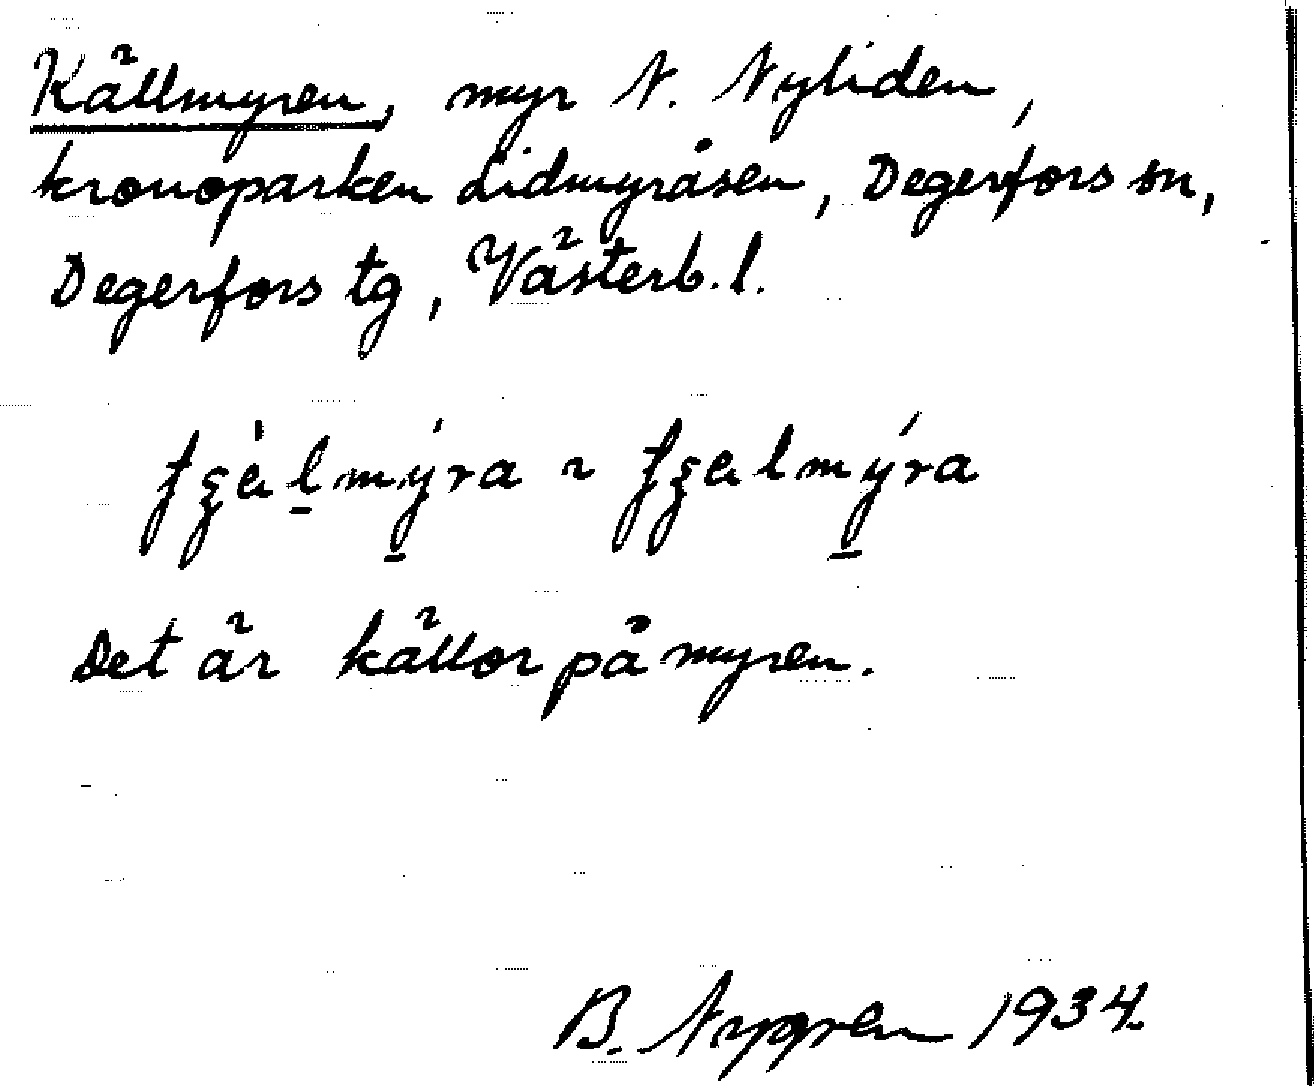 Källmyren, myr N. Nyliden,
kronoparken Lidmyråsen, Degerfors sn,
Degerfors tg, Västerb. l.
Det är källor på myren.
B. Nygren 1934.